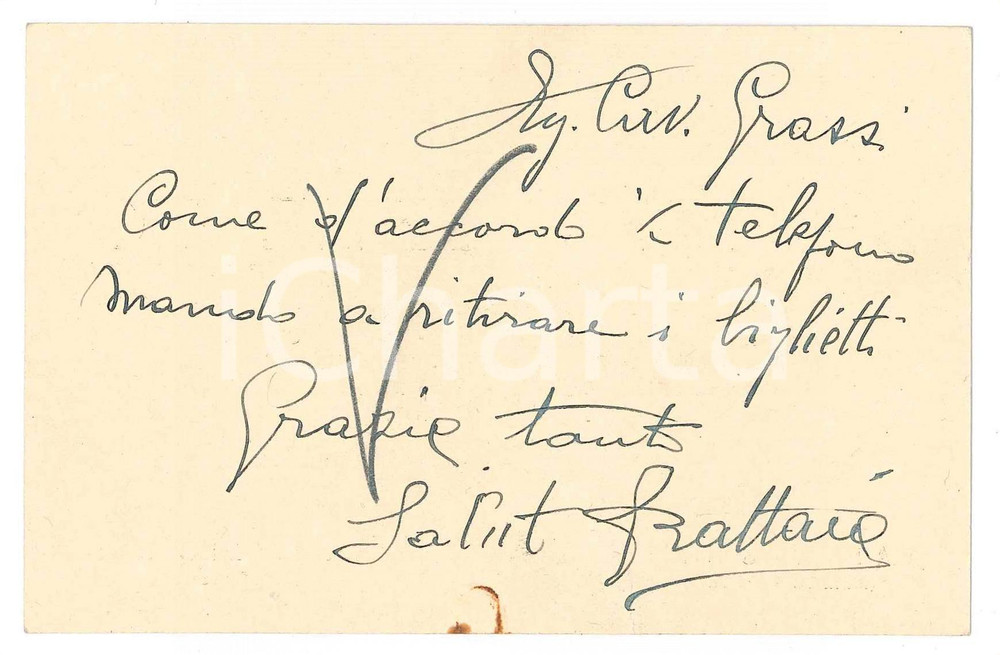 Sig. Cav. Grassi
Come d'accordo telefono
mando a ritirare i biglietti
Grazie tanto
Saluti
iCharta